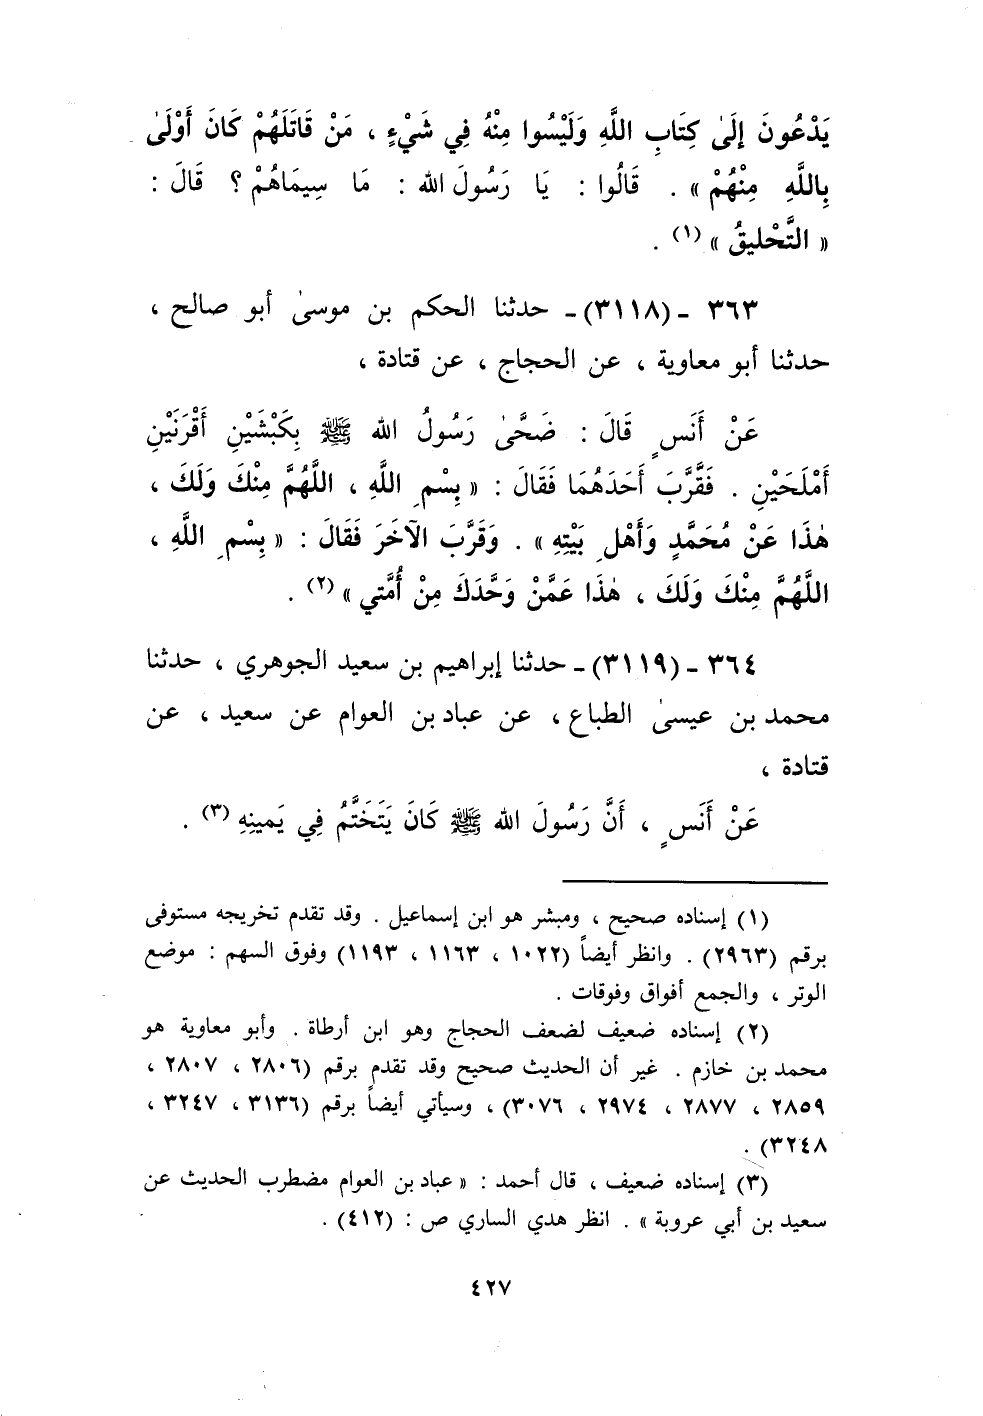 يَدْعُونَ إِلَىٰ كِتَابِ اللَّهِ وَلَيْسُوا مِنْهُ فِي شَيْءٍ ، مَنْ قَاتَلَهُمْ كَانَ أَوْلَىٰ
بِاللَّهِ مِنْهُمْ » . قَالُوا : يَا رَسُولَ الله : مَا سِيمَاهُمْ ؟ قَالَ :
« التَّحْلِيقُ » (١) .
٣٦٣ ـ (٣١١٨) ـ حدثنا الحكم بن موسىٰ أبو صالح ،
حدثنا أبو معاوية ، عن الحجاج ، عن قتادة ،
عَنْ أَنَسٍ قَالَ : ضَحَّىٰ رَسُولُ الله ﷺ بِكَبْشَيْنِ أَقْرَنَيْنِ
أَمْلَحَيْنِ . فَقَّرَبَ أَحَدَهُمَا فَقَالَ : « بِسْمِ اللَّهِ ، اللَّهُمَّ مِنْكَ وَلَكَ ،
هٰذَا عَنْ مُحَمَّدٍ وَأَهْلِ بَيْتِهِ » . وَقَرَّبَ الآخَرَ فَقَالَ : « بِسْمِ اللَّهِ ،
اللَّهُمَّ مِنْكَ وَلَكَ ، هٰذَا عَمَّنْ وَحَّدَكَ مِنْ أُمَّتي » (٢) .
٣٦٤ ـ (٣١١٩) ـ حدثنا إبراهيم بن سعيد الجوهري ، حدثنا
محمد بن عيسىٰ الطباع ، عن عباد بن العوام عن سعيد ، عن
قتادة ،
عَنْ أَنَسٍ ، أَنَّ رَسُولَ الله ﷺ كَانَ يَتَخَتَّمُ فِي يَمينِهِ (٣) .
(١) إسناده صحيح ، ومبشر هو ابن إسماعيل . وقد تقدم تخريجه مستوفى
برقم (٢٩٦٣) . وانظر أيضاً (١٠٢٢ ، ١١٦٣ ، ١١٩٣) وفوق السهم : موضع
الوتر ، والجمع أفواق وفوقات .
(٢) إسناده ضعيف لضعف الحجاج وهو ابن أرطاة . وأبو معاوية هو
محمد بن خازم . غير أن الحديث صحيح وقد تقدم برقم (٢٨٠٦ ، ٢٨٠٧ ،
٢٨٥٩ ، ٢٨٧٧ ، ٢٩٧٤ ، ٣٠٧٦) ، وسيأتي أيضاً برقم (٣١٣٦ ، ٣٢٤٧ ،
٣٢٤٨) .
(٣) إسناده ضعيف ، قال أحمد : « عباد بن العوام مضطرب الحديث عن
سعيد بن أبي عروبة » . انظر هدي الساري ص : (٤١٢) .
٤٢٧